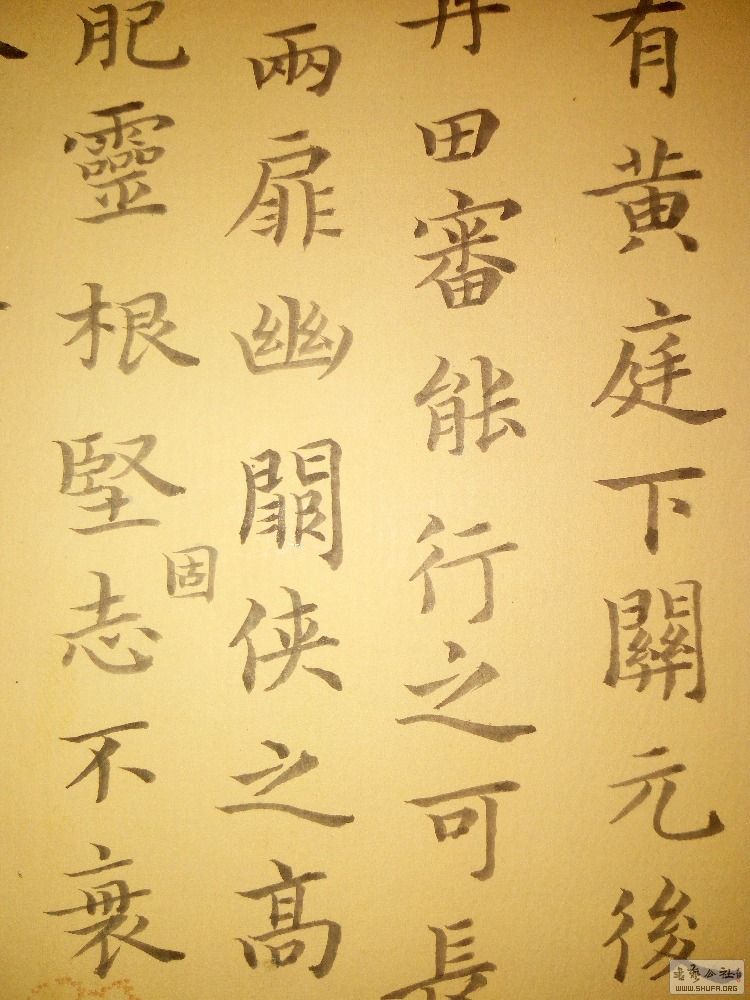 有黄庭下關元後
丹田審能行之可長
兩扉幽闕侠之高
肥靈根堅志不衰
固
書藝公社
WWW.SHUFA.ORG